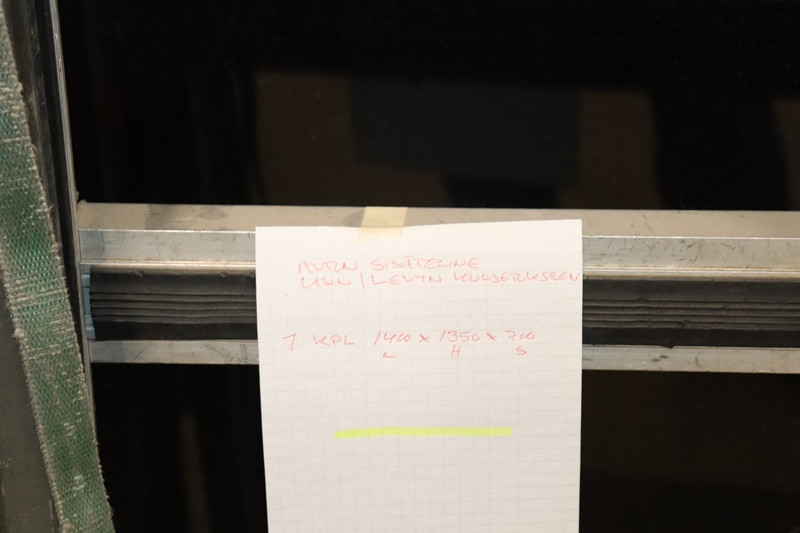 AUTON SISÄTELINE
LASIN / LEVYN KULJETUKSEEN
1 KPL 1400 x 1350 x 700
L H S